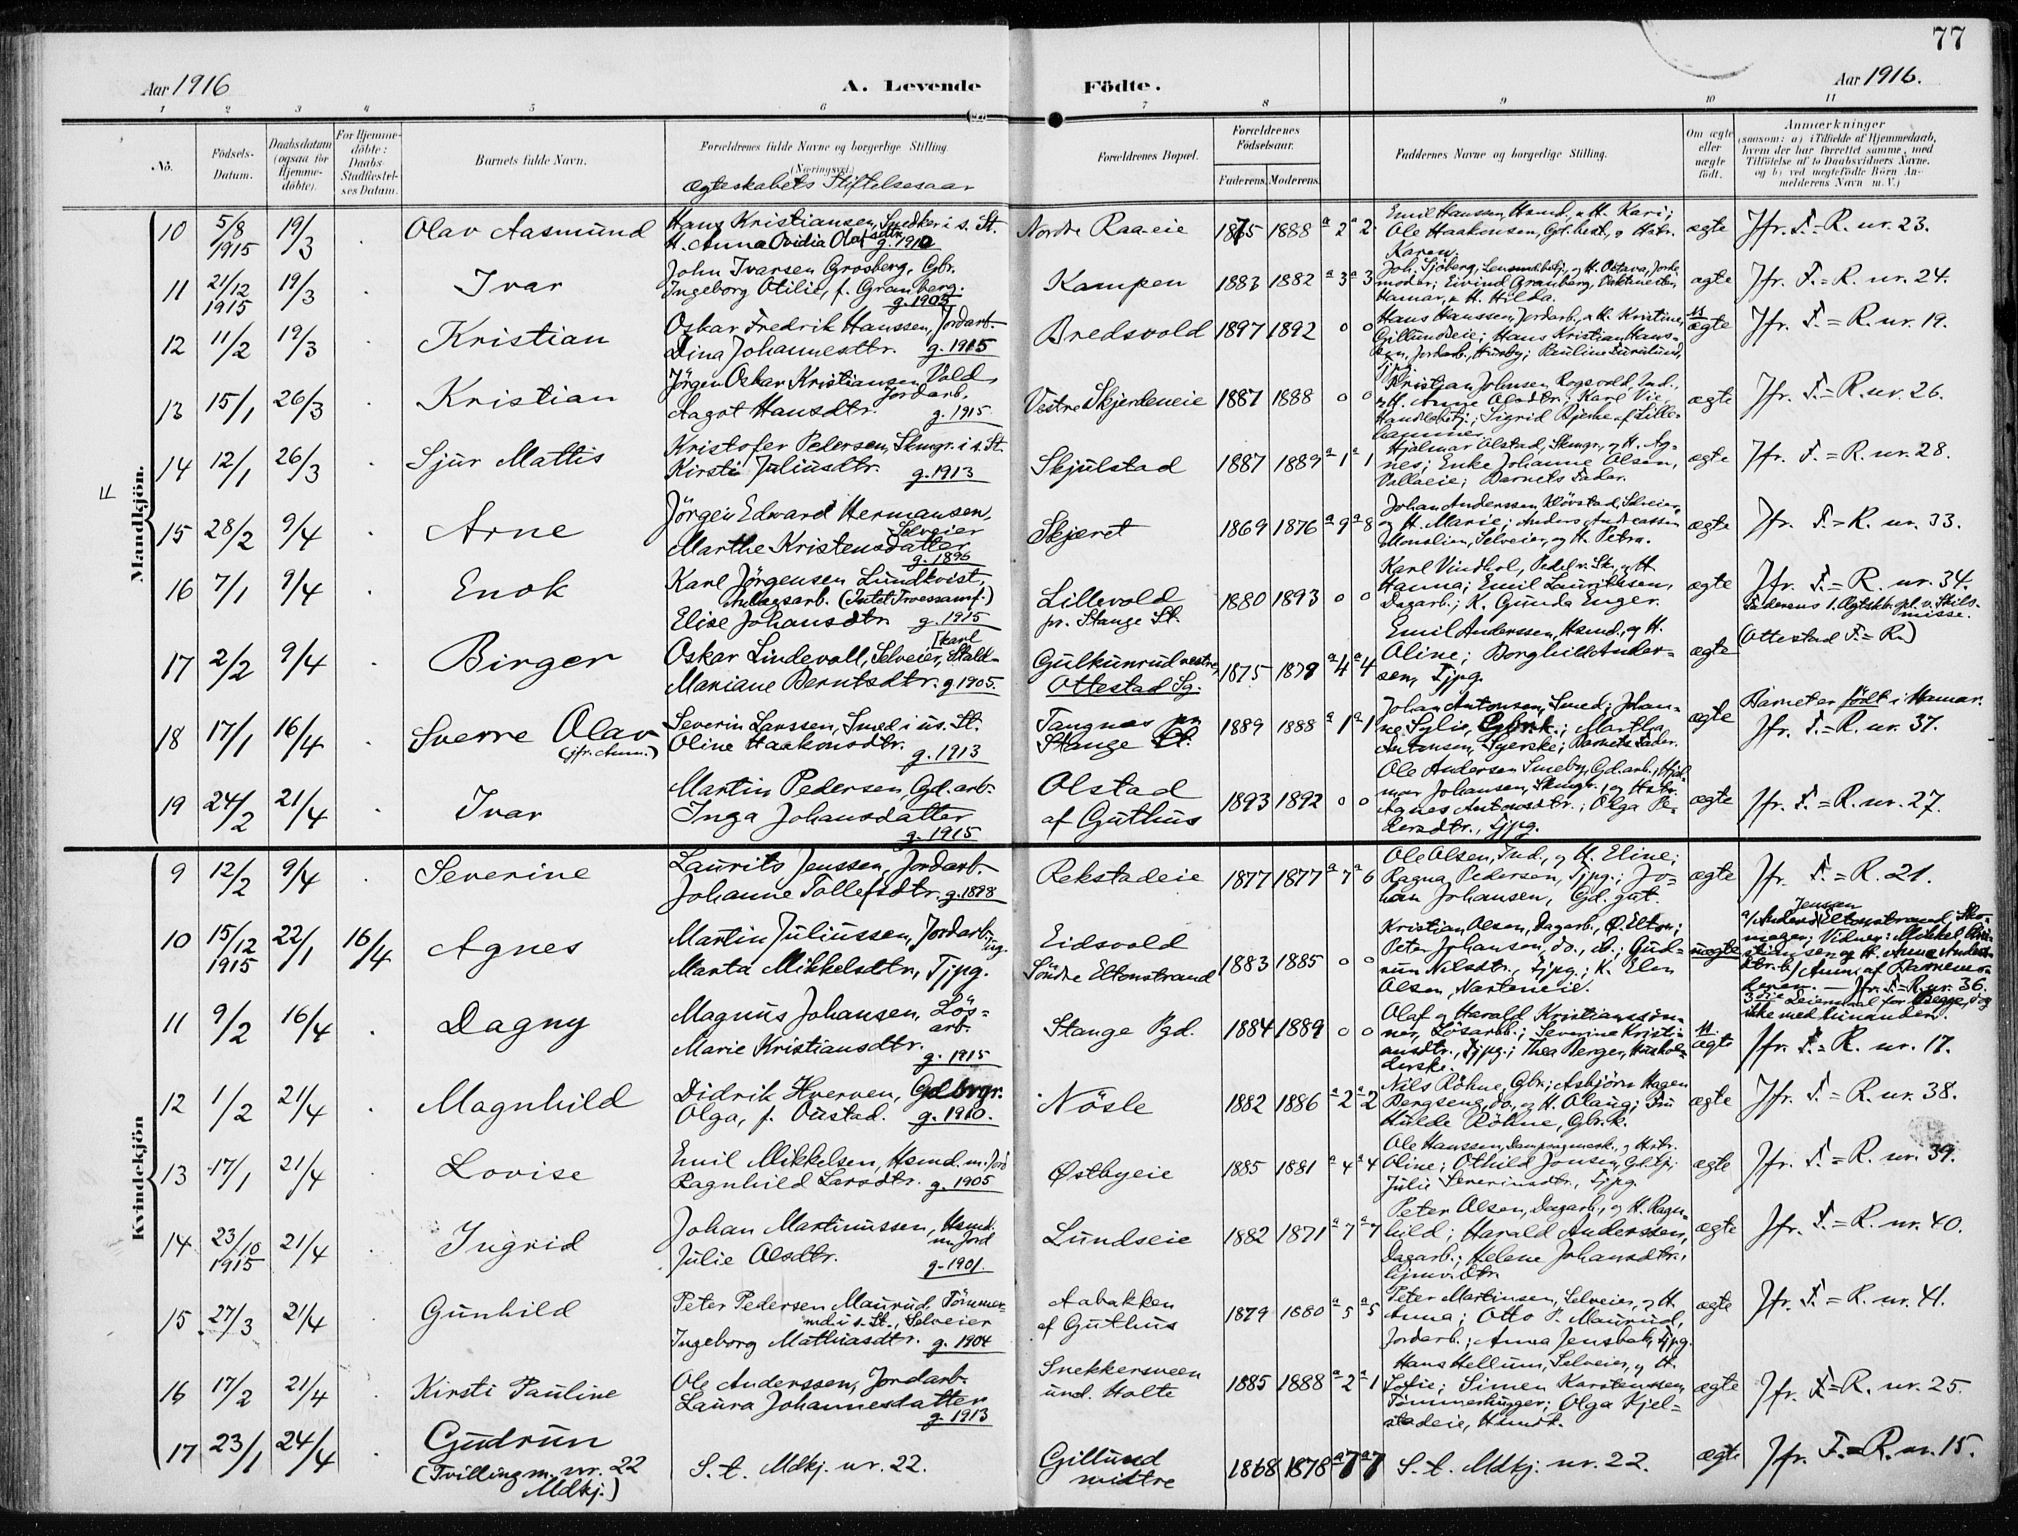 77
Aar 1916
A. Levende
Födte.
Aar 1916.
1 2 3 4 5 6 7 8 9 10 11
No.
Födsels-
Datum.
Daabsdatum
(ogsaa for
Hjemme-
döbte).
For Hjemme-
döbte:
Daabs-
Stadfæstel-
ses Datum.
Barnets fulde Navn.
Forældrenes fulde Navne og borgerlige Stilling.
(Næringsvei)
Ægteskabets Stiftelsesaar
Forældrenes Bopæl.
Forældrenes
Födselsaar.
Faderens. Moderens.
Faddernes Navne og borgerlige Stilling.
Om ægte
eller
uægte
födt.
Anmærkninger
(saasom: a) i Tilfælde af Hjemmedaab,
hvem der har forrettet samme, med
Tilföielse af to Daabsvidners Navne.
og b) ved uægtefödte Börn An-
melderens Navn m. V.)
Mandkjön.
10 5/8 1915 19/3 Olav Aasmund
Hans Kristiansen, Snedker i s. St.
H. Anna Ovidia Olafsdtr. g. 1910
Nordre Raaeie 1875 1888 a 2 a 2
Emil Hanssen, Hsmd, & H. Kari;
Ole Haakensen, Gdbest., & Hstr.
Karen.
ægte Jfr. F.=R. nr. 23.
11 21/12 1915 19/3 Ivar
John Ivarsen Grosberg, Gbr.
Ingeborg Otilie, f. Granberg.
g. 1903
Kampen 1883 1882 a 3 a 3
Joh. Sjöberg, & H. Octava, Jorde
moder; Eivind Granberg,
Hamar, & H. Hilda.
ægte Jfr. F.=R. nr. 24.
12 11/2 19/3 Kristian
Oskar Fredrik Hanssen, Jordarb.
Dina Johannesdtr. g. 1915
Bredsvold 1897 1892 0 0
Hans Hanssen, Jordarb., & H. Kristine,
Gillundseie; Hans Kristian Hans-
sen, Jordarb., Husby; Pauline
Tjpg.
ægte Jfr. F.=R. nr. 19.
13 15/1 26/3 Kristian
Jörgen Oskar Kristiansen Vold,
Jordarb.
Aagot Hansdtr. g. 1915.
Vestre Skjerdeneie 1887 1888 0 0
Kristian Johnsen Rogsvold, Ind.,
& H. Anna Olsdtr.; Karl Vie,
Handelsbetj.; Sigrid Bjerke af Lille-
hammer.
ægte Jfr. F.=R. nr. 26.
14 12/1 26/3 Sjur Mattis
Kristofer Pedersen, Skmgr. i s. St.
Kirsti Juliusdtr. g. 1913
Skjulstad 1887 1889 a 1 a 1
Hjalmar Olstad, Skmgr., & H. Ag-
nes; Enke Johanne Olsen,
Vallaeie; Barnets Fader.
ægte Jfr. F.=R. nr. 28.
15 28/2 9/4 Arne
Jörgen Edvard Hermansen,
Selveier
Marthe Kristensdatter
g. 1896
Skjæret 1869 1876 a 9 a 8
Johan Anderssen Klövstad, Selveier,
og H. Marie; Anders Andreassen
Monslien, Selveier, og H. Petra.
ægte Jfr. F.=R. nr. 33.
16 7/1 9/4 Enok
Karl Jörgensen Lundkvist,
Anlægsarb. (Intet Troessamf.)
Elise Johansdtr. g. 1915
Lillevold
pr. Stange St. 1880 1893 0 0
Karl Vindhol, Pedel v. Sk., & H
Hanna; Emil Lauritssen,
Dagarb.; K. Gunda Enger.
ægte Jfr. F.=R. nr. 34.
Faderens 1. Ægtskb. opl. v. Skils-
misse.
17 2/2 9/4 Birger
Oskar Lindevoll, Selveier, Stald-
karl
Mariane Berntsdtr. g 1905.
Gulkunrud vestre,
Ottestad Sg. 1875 1879 a 4 a 4
Emil Anderssen, Hsmd, og H.
Oline; Borghild Ander-
sen, Tjpg.
ægte (Ottestad F.=R.)
18 17/1 16/4 Sverre Olav
(jfr. Anm.)
Severin Larssen, Smed i us. St.
Oline Haakonsdtr. g. 1913
Tangnes pr
Stange St. 1889 1888 a 1 a 1
Johan Antonsen, Smed; Johan-
ne Sylju, Gbr.k.; Martha
Antonsen, Syerske; Barnets Fader.
ægte Barnet er födt i Hamar.
Jfr. F.=R. nr. 37.
19 24/2 21/4 Ivar
Martin Pedersen, Gd.arb.
Inga Johansdatter
g. 1915
Olstad
af Guthus 1893 1892 0 0
Ole Andersen Smeby, Gd.arb., Hjal-
mar Johansen, Skmgr., og Hstr.
Agnes Antonsdtr.; Olga Pe-
dersdtr., Tjpg.
ægte Jfr. F.=R. nr. 27.
Kvindekjön
9 12/2 9/4 Severine
Laurits Jenssen, Jordarb.
Johanne Tollefsdtr. g. 1898
Rekstadeie 1877 1877 a 7 a 6
Ole Olsen, Ind., og H. Eline;
Ragna Pedersen, Tjpg.; Jo-
han Johansen, Gd.gut.
ægte Jfr. F.=R. 21.
10 15/12 1915 22/1 16/4 Agnes
Martin Juliussen, Jordarb.
ug.
Marta Mikkelsdtr., Tjpg.
Eidsvold
Söndre Eltonstrand 1883 1885 0 0
Kristian Olsen, Dagarb., Ø. Elton;
Peter Johansen, do., do.; Gud-
run Nilsdtr., Tjpg.; K. Elen
Olsen, Narteneie.
uægte
a/ Anders Jensen Eltonstrand, Sko-
mager; Vidner: Mikkel Kri-
stiansen og H. Anna Anders-
dtr. b/ Anm. af Barnemo-
deren. — Jfr. F.=R. nr. 36.
3die Leiermaal for Begge, dog
ikke med hinanden.
11 9/2 16/4 Dagny
Magnus Johansen, Lös-
arb.
Marie Kristiansdtr.
g. 1915
Stange Pgd. 1884 1889 0 0
Olaf og Harald Kristianssön-
ner, Lösarbb.; Severine Kristi-
ansdtr., Tjpg.; Thea Berger, Hushol-
derske.
ægte Jfr. F.=R. nr. 17.
12 1/2 21/4 Magnhild
Didrik Hverven, Gdbrgr.
Olga, f. Oustad. g. 1910.
Nösle 1882 1886 a 2 a 2
Nils Röhne, Gbr.; Asbjörn Hagen
Bergseng, do., og H. Olaug; Fru
Hulde Röhne, Gbr.k.
ægte Jfr. F.=R. nr. 38.
13 17/1 21/4 Lovise
Emil Mikkelsen, Hsmd. m. Jord
Ragnhild Larsdtr. g. 1905
Østbyeie 1885 1881 a 4 a 4
Ole Hanssen, & Hstr.
Oline; Othild Jonsen,
Julie Severinsdtr., Tjpg.
ægte Jfr. F.=R. nr. 39.
14 23/10 1915 21/4 Ingrid
Johan Martinussen, Hsmd.
m. Jord
Julie Olsdtr. g. 1901.
Lundseie 1882 1871 a 7 a 7
Peter Olsen, Dagarb., og H. Ragn-
hild; Harald Anderssen,
Dagarb.; Helene Johansdtr.,
Hjmv. Dtr.
ægte Jfr. F.=R. nr. 40.
15 27/3 21/4 Gunhild
Peter Pedersen Maurud, Tömmer-
md. i s. St., Selveier
Ingeborg Mathiasdtr. g. 1904
Aabakken
af Guthus 1879 1880 a 5 a 5
Peter Martinsen, Selveier, og H.
Anna; Otto P. Maurud,
Jordarb.; Anna Jensbak, Tjpg.
ægte Jfr. F.=R. nr. 41.
16 17/2 21/4 Kirsti Pauline
Ole Anderssen, Jordarb.
Laura Johannesdatter
g. 1913
Snekkersveen
und. Holte 1885 1888 a 2 a 1
Hans Hellum, Selveier, og H.
Sofie; Simen Karstenssen,
Tömmerhugger; Olga Kjel-
stadeie, Hsmdk.
ægte Jfr. F.=R. nr. 25.
17 23/1 24/4 Gudrun
(Tvilling m. nr. 22
Mdkj.)
S. t. Mdkj. nr. 22.
Gillund
midtre 1868 1878 a 7 a 7
S. t. Mdkj. nr. 22. ægte Jfr. F.=R. nr. 15.